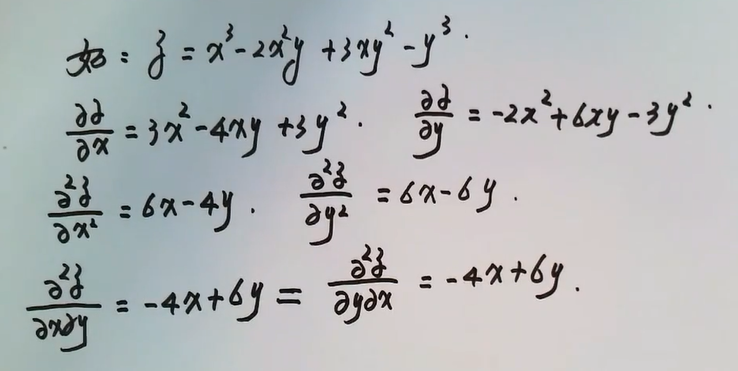 如: z = x³ - 2x²y + 3xy² - y³.
∂z/∂x = 3x² - 4xy + 3y². ∂z/∂y = -2x² + 6xy - 3y².
∂²z/∂x² = 6x - 4y. ∂²z/∂y² = 6x - 6y.
∂²z/∂x∂y = -4x + 6y = ∂²z/∂y∂x = -4x + 6y.